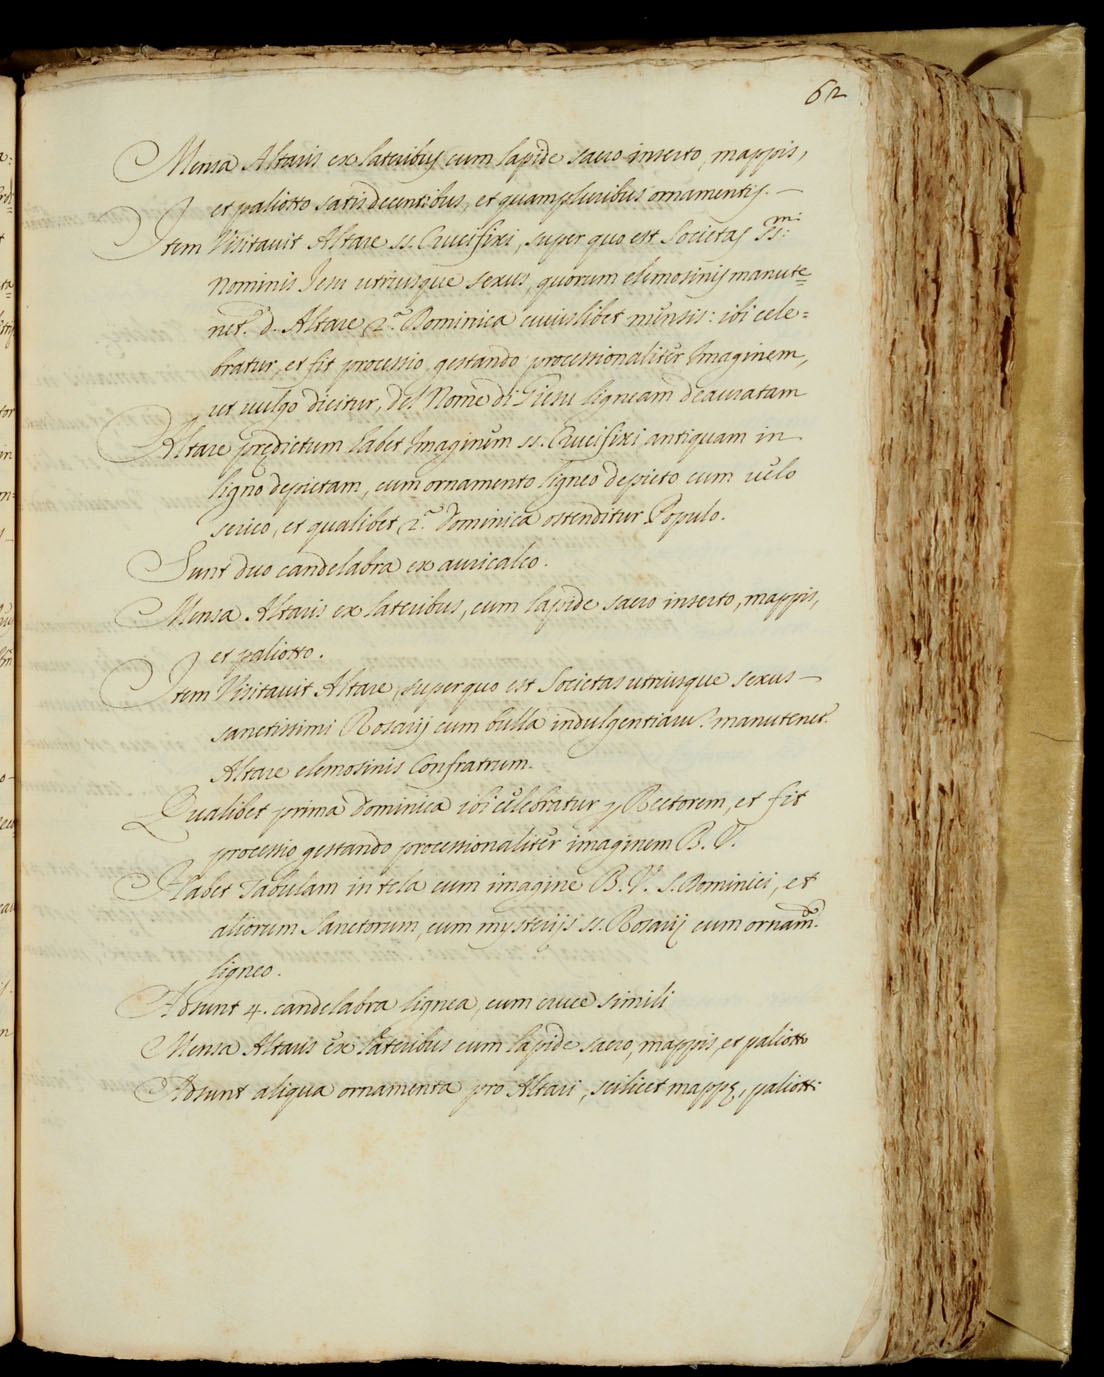 62
Mensa Altaris ex lateribus cum lapide sacro inserto, mappis,
et paliotto satis decentibus, et quampluribus ornamentis. —
Item Visitauit Altare ss. Crucifixi, super quo est Societas Ss.mi
Nominis Jesu utriusque sexus, quorum elemosinis manute=
net.r d. Altare 2.a Dominica cuiuslibet mensis: ibi cele=
bratur, et fit processio, gestando processionaliter Imaginem,
ut uulgo dicitur, del Nome di Giesu ligneam deauratam
Altare prędictum habet Imaginem ss. Crucifixi antiquam in
ligno depictam, cum ornamento ligneo depicto cum uelo
serico, et qualibet 2.a Dominica ostenditur Populo.
Sunt duo candelabra ex auricalco.
Mensa Altaris ex lateribus, cum lapide sacro inserto, mappis,
et paliotto.
Item Visitauit Altare, super quo est Societas utriusque sexus —
sanctissimi Rosarij cum bulla indulgentiaru. manutenet.r
Altare elemosinis Confratrum.
Qualibet prima Dominica ibi celebratur p Rectorem, et fit
processio gestando processionaliter imaginem B. V.
Habet Tabulam in tela cum imagine B. V. S. Dominici, et
aliorum Sanctorum, cum mysterijs ss. Rosarij cum ornam.to
ligneo.
Adsunt 4. candelabra lignea, cum cruce simili
Mensa Altaris ex lateribus cum lapide sacro, mappis, et paliotto
Adsunt aliqua ornamenta pro Altari, scilicet mappę, paliotti